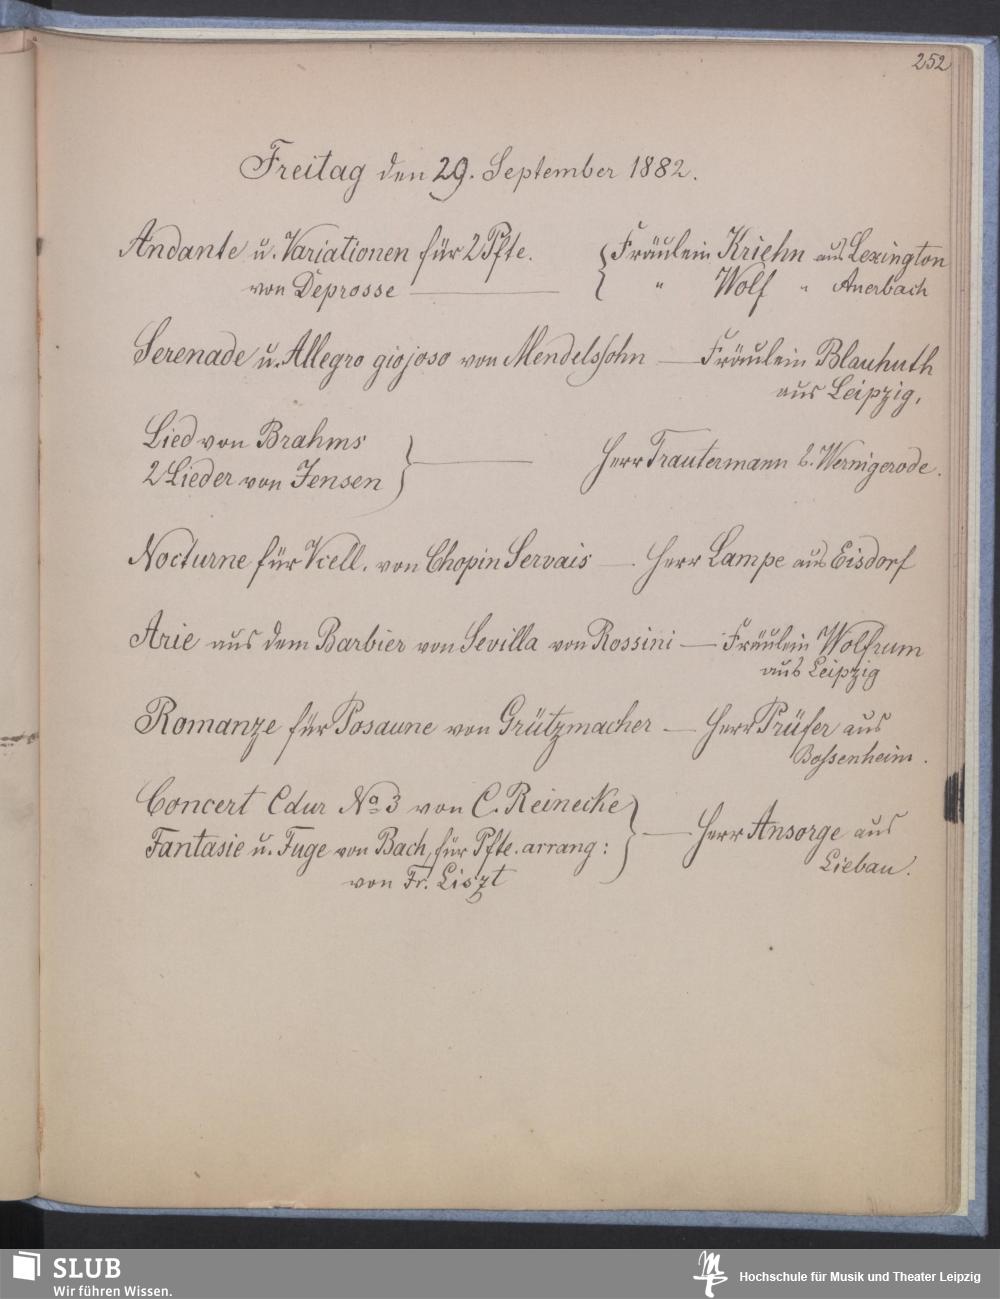 252
Freitag den 29. September 1882.
Andante u. Variationen für 2 Pfte.
von Deprosse
Fräulein Kriehn aus Lexington
" Wolf " Auerbach
Serenade u. Allegro giojoso von Mendelssohn — Fräulein Blauhuth
aus Leipzig,
Lied von Brahms
2 Lieder von Jensen
Herr Trautermann b. Wernigerode.
Nocturne für Vcell. von Chopin Servais — Herr Lampe aus Eisdorf
Arie aus dem Barbier von Sevilla von Rossini — Fräulein Wolfrum
aus Leipzig
Romanze für Posaune von Grützmacher — Herr Prüfer aus
Bossenheim.
Concert Cdur No 3 von C. Reinecke
Fantasie u. Fuge von Bach, für Pfte. arrang:
von Fr. Liszt
— Herr Ansorge aus
Liebau.
SLUB
Wir führen Wissen.
Hochschule für Musik und Theater Leipzig